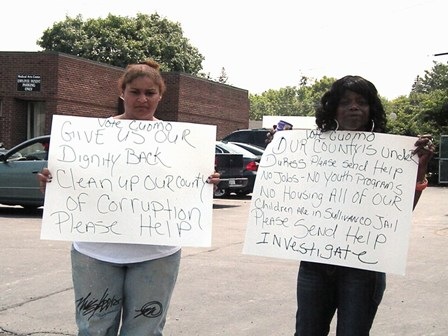 Medical Arts Center
EMPLOYEE / PATIENT
PARKING
ONLY
Vote Cuomo
GIVE US OUR
Dignity Back
Clean up our county
of Corruption
Please Help
Vote Cuomo
OUR COUNTY IS Under
DuRess Please Send Help
No Jobs - No Youth Programs
No Housing All of OUR
Children ARE in SULLIVAN CO JAIL
Please Send Help
INvestigate